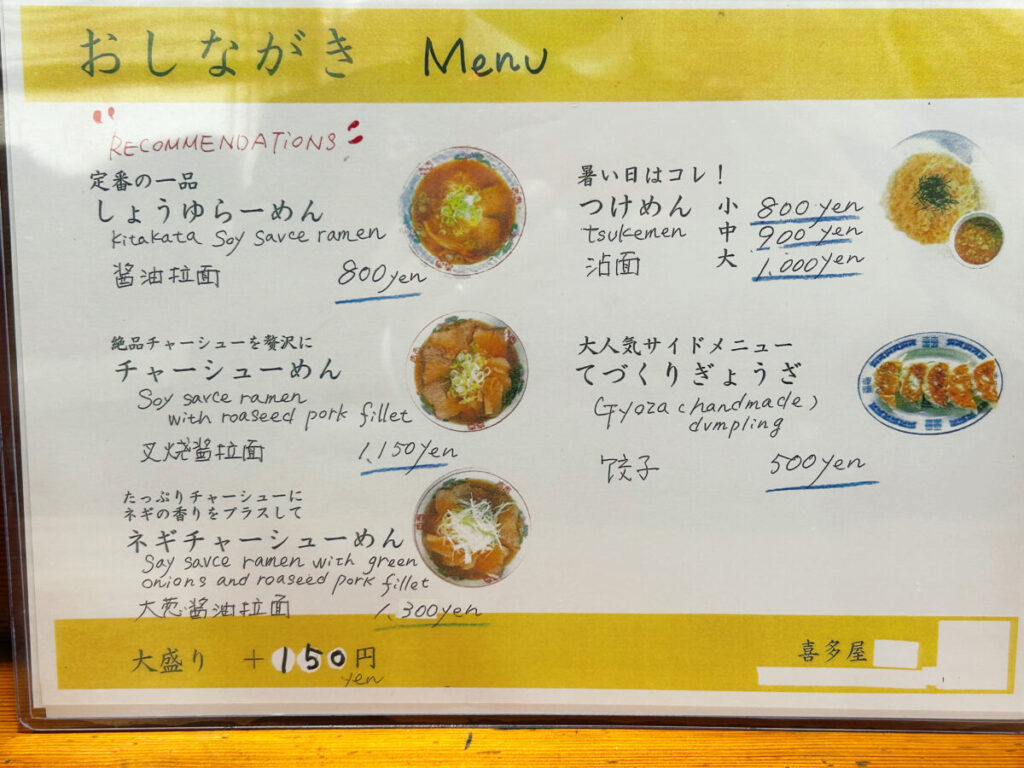 おしながき Menu
"RECOMMENDATiONS"
定番の一品
しょうゆらーめん
Kitakata Soy Savce ramen
醤油拉面 800yen
絶品チャーシューを贅沢に
チャーシューめん
Soy savce ramen
with roaseed pork fillet
叉烧醤拉面 1,150yen
たっぷりチャーシューに
ネギの香りをプラスして
ネギチャーシューめん
Say savce ramen with green
onions and roaseed pork fillet
大葱醤油拉面 1,300yen
大盛り +150円
yen
暑い日はコレ！
つけめん 小 800yen
tsukemen 中 900yen
沾面 大 1,000yen
大人気サイドメニュー
てづくりぎょうざ
Gyoza (handmade)
dvmpling
饺子 500yen
喜多屋